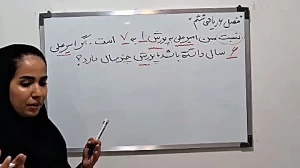 "فصل ۶ ریاضی ششم"
نسبت سن امیرعلی به پدرش ۱ به ۷ است. اگر امیرعلی
۶ سال داشته باشد، پدرش چند سال دارد؟